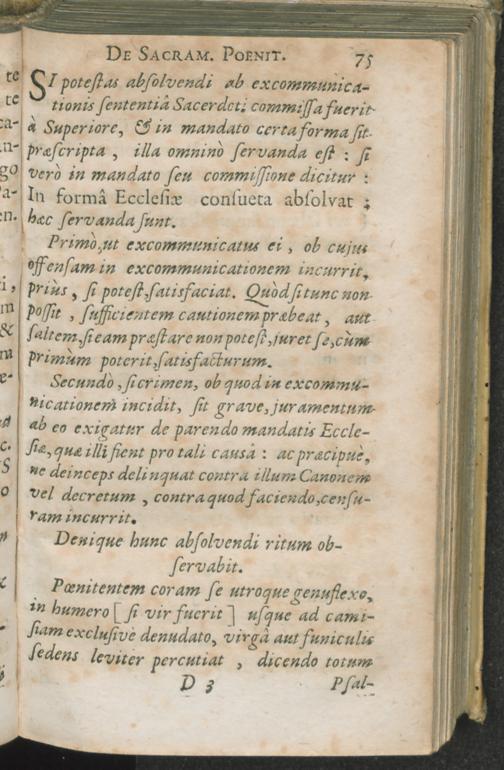 DE SACRAM. POENIT. 75
SI poteſtas abſolvendi ab excommunica-
tionis ſententiâ Sacerdoti commiſſa fuerit
à Superiore, & in mandato certa forma ſit
præſcripta, illa omninò ſervanda eſt : ſi
verò in mandato ſeu commiſſione dicitur :
In formâ Eccleſiæ conſueta abſolvat ;
hæc ſervanda ſunt.
Primò, ut excommunicatus ei, ob cujus
offenſam in excommunicationem incurrit,
priùs, ſi poteſt, ſatisfaciat. Quòd ſi tunc non
poſſit, ſufficientem cautionem præbeat, aut
ſaltem, ſi eam præſtare non poteſt, juret ſe, cùm
primùm poterit, ſatisfacturum.
Secundò, ſi crimen, ob quod in excommu-
nicationem incidit, ſit grave, juramentum
ab eo exigatur de parendo mandatis Eccle-
ſiæ, quæ illi fient pro tali causâ : ac præcipuè,
ne deinceps delinquat contra illum Canonem
vel decretum, contra quod faciendo, cenſu-
ram incurrit.
Denique hunc abſolvendi ritum ob-
ſervabit.
Pœnitentem coram ſe utroque genuflexo,
in humero [ ſi vir fuerit ] uſque ad cami-
ſiam excluſivè denudato, virgâ aut funiculis
ſedens leviter percutiat, dicendo totum
D 3 Pſal-